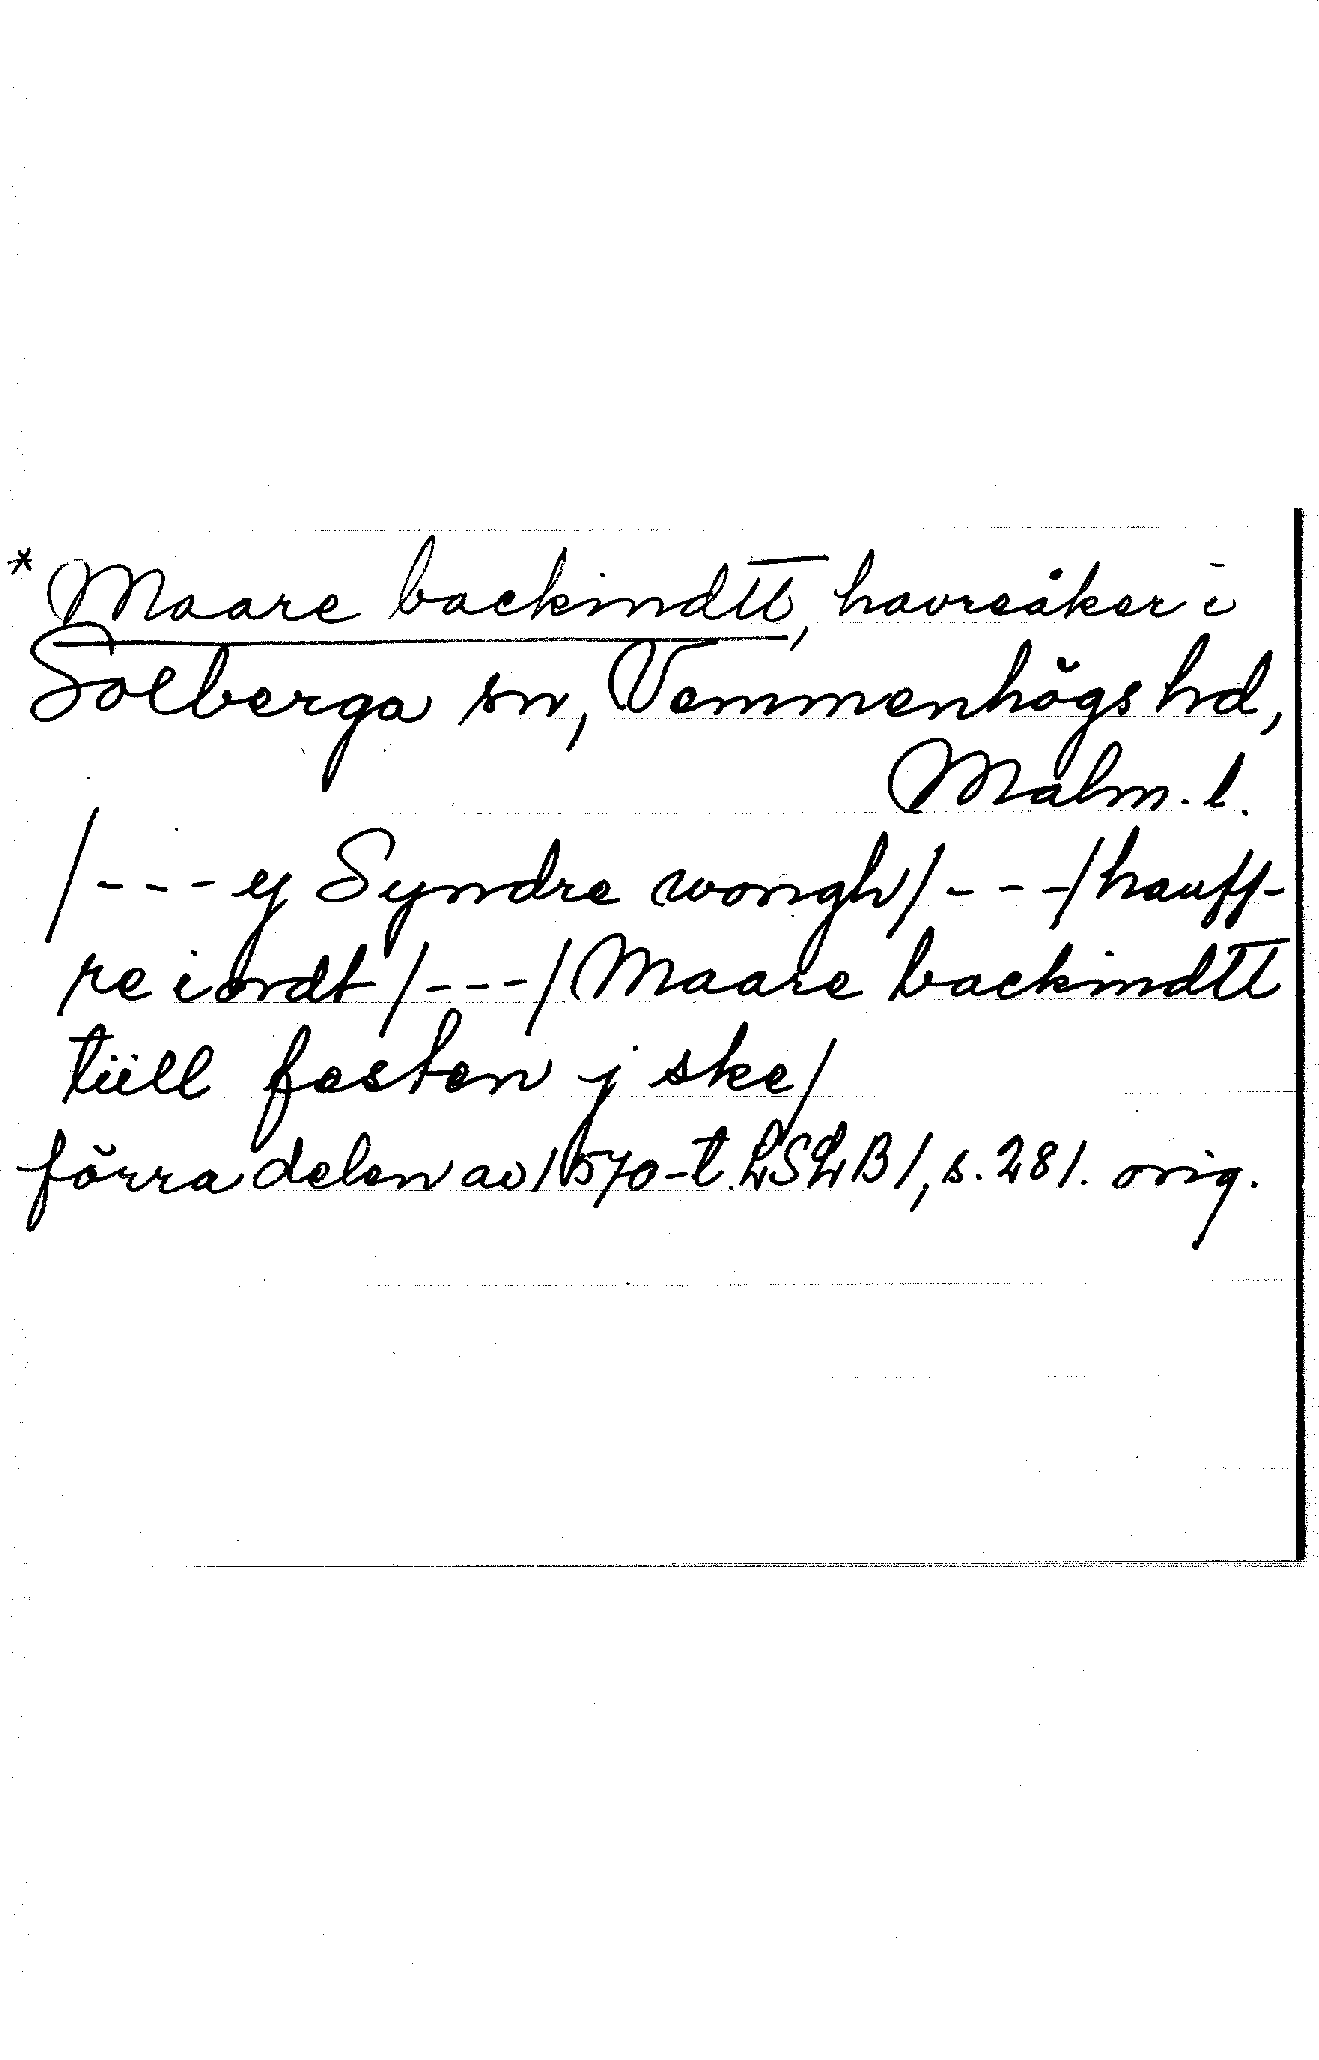 * Maare backindtt, havreåker i
Solberga sn, Vemmenhögs hd,
Malm. l.
/---ej Syndre wongh/---/hauff-
re iordt/---/Maare backindtt
tüll festen j ske/
förra delen av 1570-t. LSLB1, s. 281. orig.